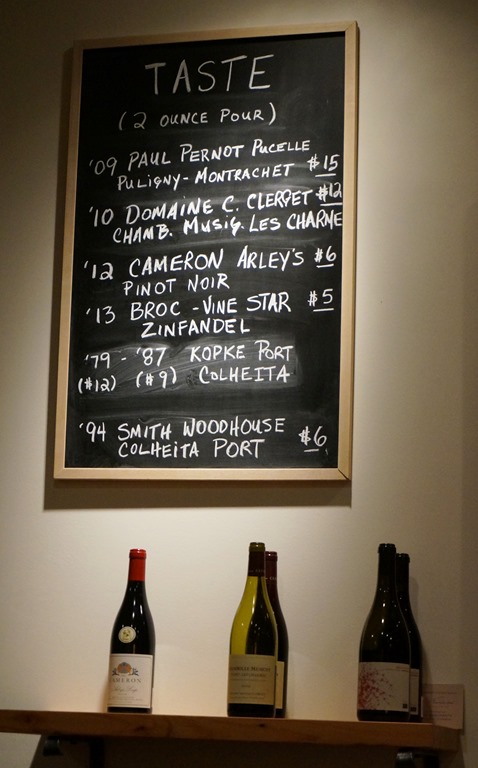 TASTE
(2 OUNCE POUR)
'09 PAUL PERNOT PUCELLE
PULIGNY-MONTRACHET $15
'10 DOMAINE C. CLERGET $12
CHAMB. MUSIG. LES CHARME
'12 CAMERON ARLEY'S $6
PINOT NOIR
'13 BROC - VINE STAR $5
ZINFANDEL
'79 - '87 KOPKE PORT
($12) ($9) COLHEITA
'94 SMITH WOODHOUSE
COLHEITA PORT $6
CAMERON